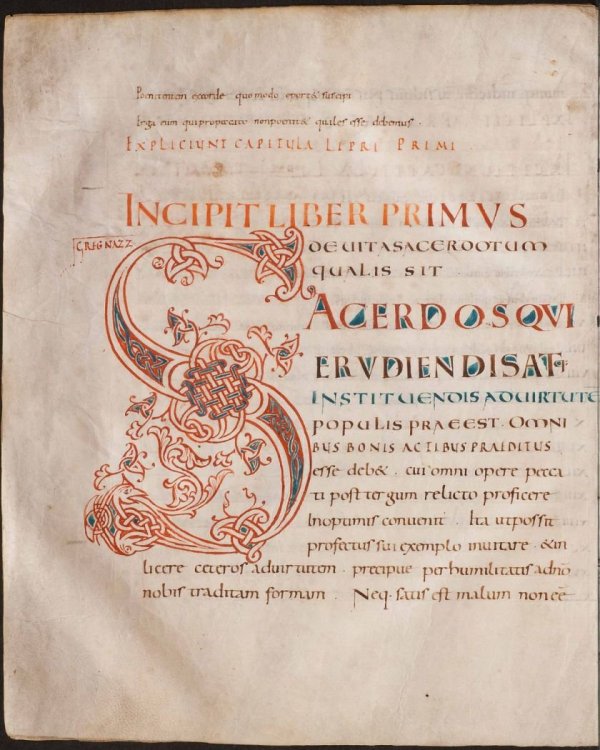 quo modo oport& suscipi
Erga eum qui quales esse debemus.
EXPLICIUNT CAPITULA LIBRI PRIMI
INCIPIT LIBER PRIMVS
GREG NAZZ
DE UITA SACERDOTUM
QUALIS SIT
SACERDOS QVI
ERVDIENDIS AT
INSTITUENDIS AD UIRTUTE
POPULIS PRAEEST. OMNI
BUS BONIS ACTIBUS PRAEDITUS
esse deb&. cui omni opere pecca
ti post tergum relicto proficere
In optimis conuenit. Ita ut possit
profectus sui exemplo inuitare. & in
licere ceteros ad uirtutem. precipue per humilitatis a dno
nobis traditam formam. Neq. satis est malum non eē